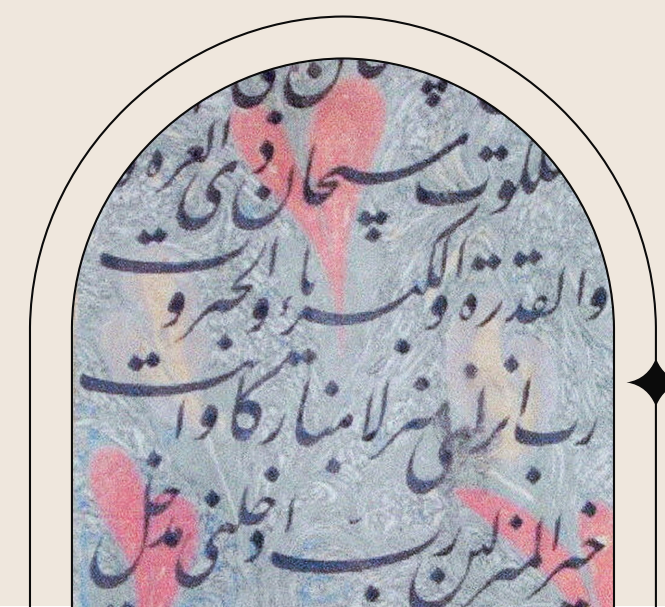 سبحان ذی العزه
والقدرة والکبریاء والجبروت و
رب انزلنی منزلا مبارکا وانت
خیر المنزلین رب ادخلنی مدخل